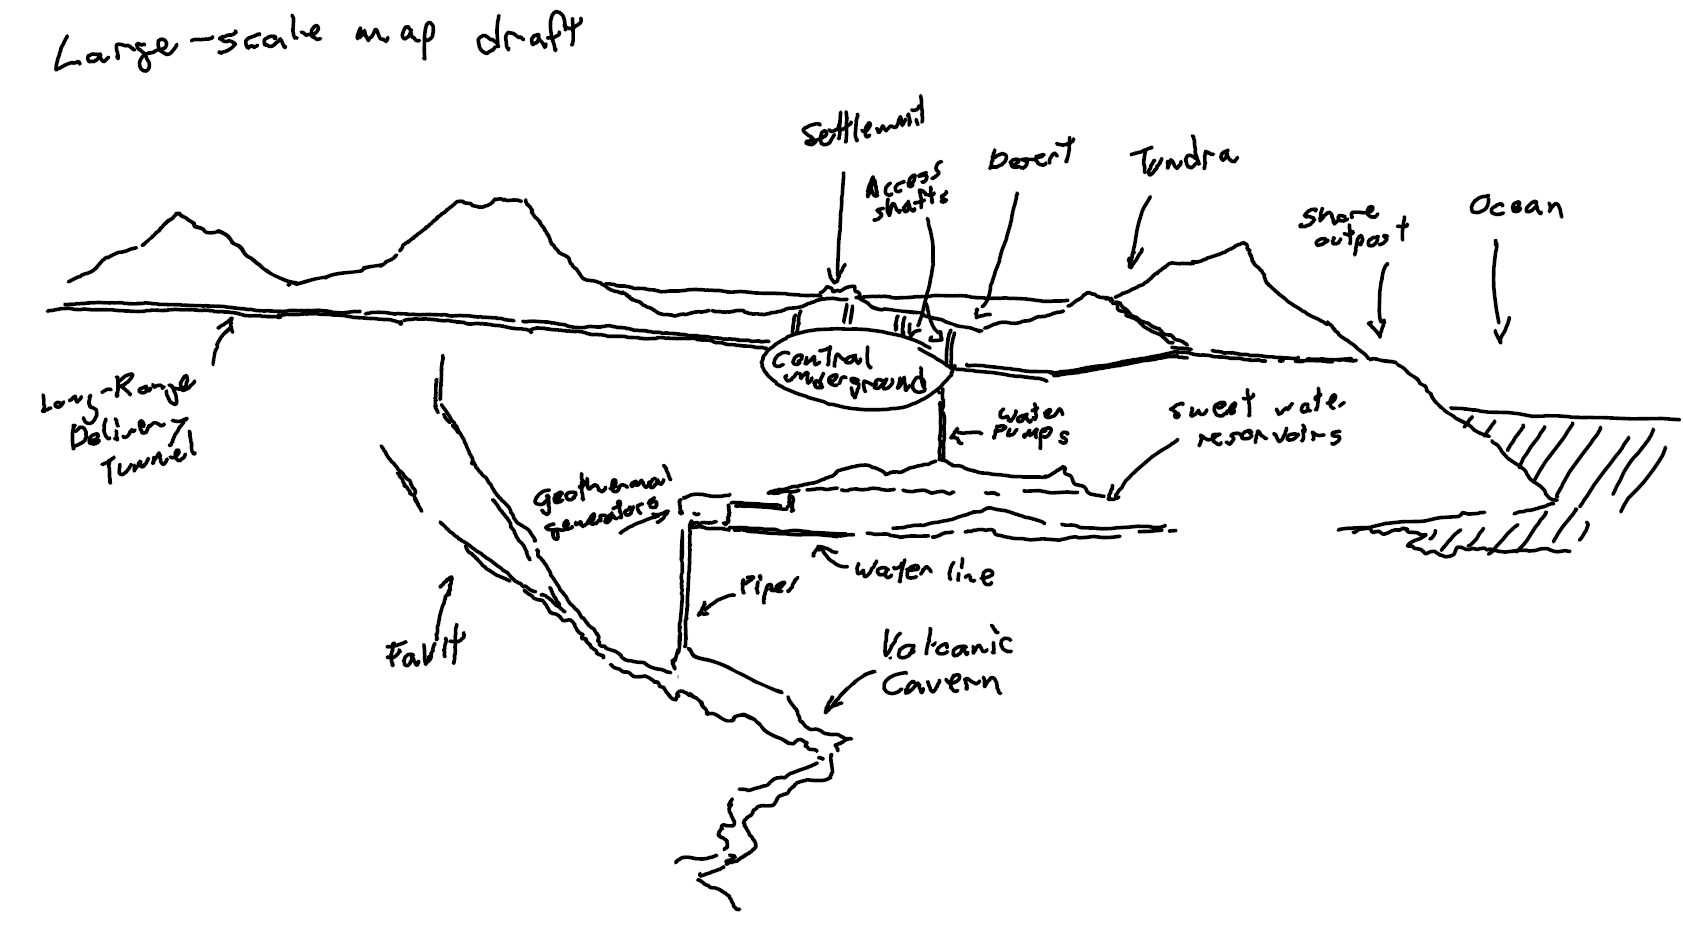 Large-scale map draft
Settlemnt
Access
shafts
Desert
Tundra
Shore
outpost
Ocean
Central
underground
Long-Range
Delivery
Tunnel
Water
Pumps
sweet water
reservoirs
Geothermal
generators
Water line
Pipes
Fault
Volcanic
Cavern